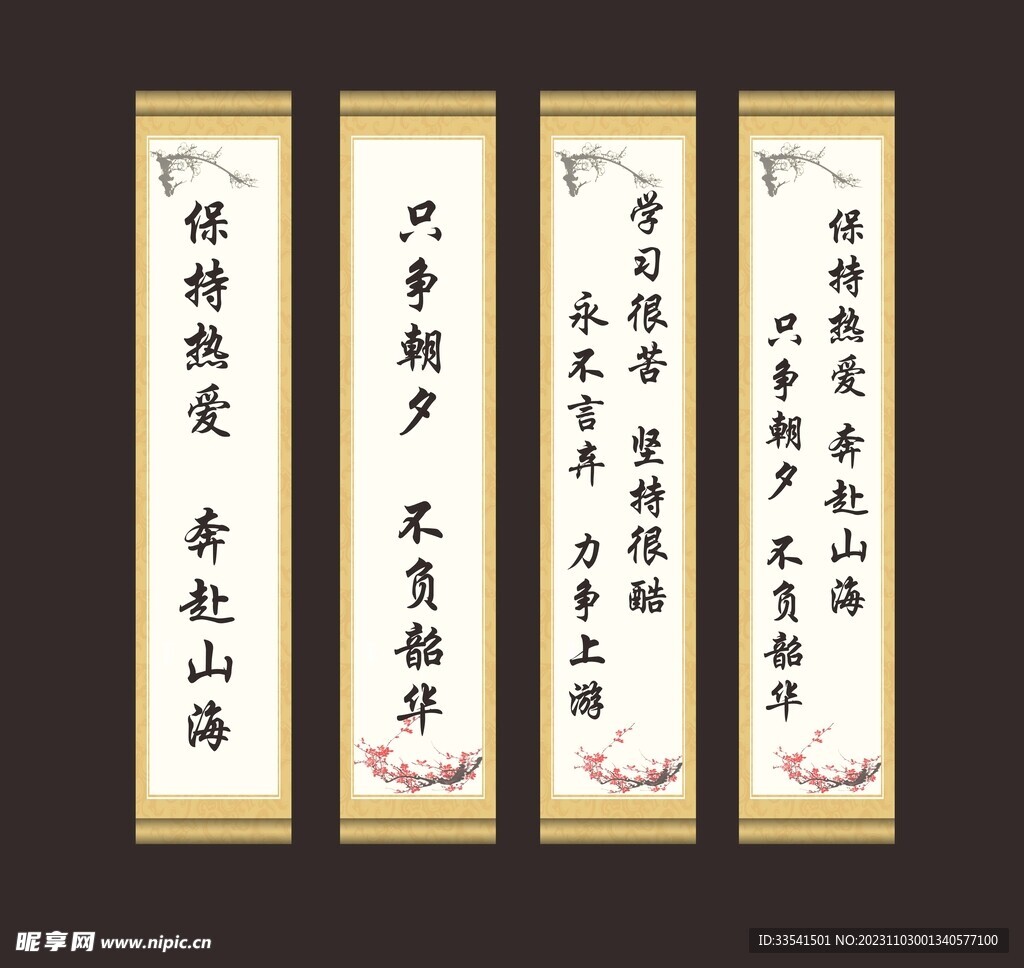 保持热爱 奔赴山海
只争朝夕 不负韶华
学习很苦 坚持很酷
永不言弃 力争上游
保持热爱 奔赴山海
只争朝夕 不负韶华
昵享网 www.nipic.cn
ID:33541501 NO:20231103001340577100